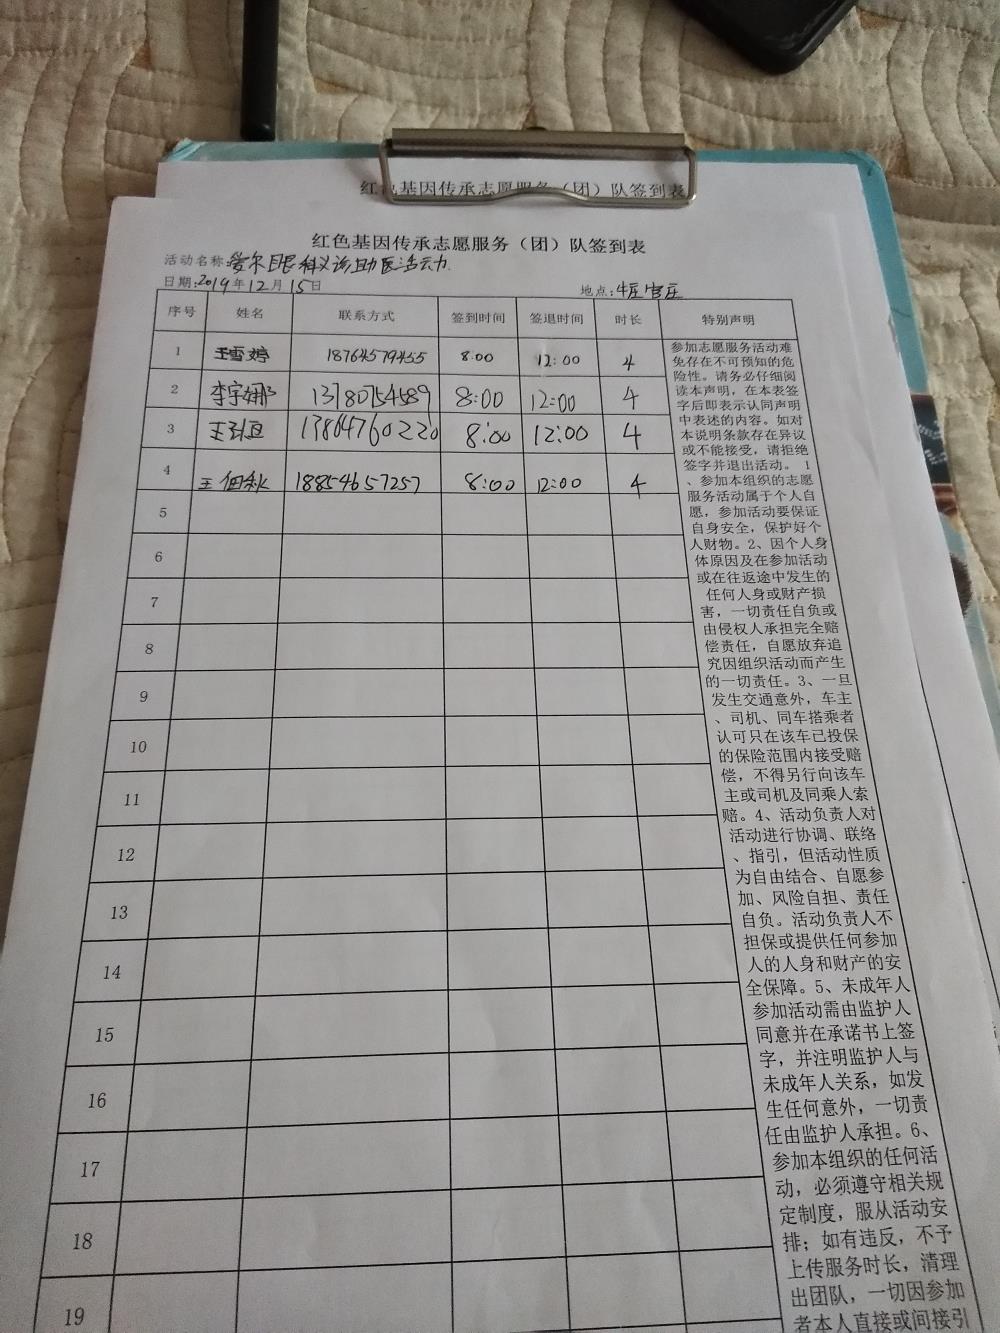 红色基因传承志愿服务（团）队签到表
红色基因传承志愿服务（团）队签到表
活动名称:爱尔眼科义诊助医活动
日期:2019年12月15日 地点:牛庄官庄
序号 姓名 联系方式 签到时间 签退时间 时长 特别声明
1 王雪婷 18764579455 8:00 12:00 4
2 李宇娜 13780754589 8:00 12:00 4
3 13864760220 8:00 12:00 4
4 王佃秋 18854657257 8:00 12:00 4
5
6
7
8
9
10
11
12
13
14
15
16
17
18
19
参加志愿服务活动难
免存在不可预知的危
险性。请务必仔细阅
读本声明，在本表签
字后即表示认同声明
中表述的内容。如对
本说明条款存在异议
或不能接受，请拒绝
签字并退出活动。 1
、参加本组织的志愿
服务活动属于个人自
愿，参加活动要保证
自身安全，保护好个
人财物。2、因个人身
体原因及在参加活动
或在往返途中发生的
任何人身或财产损
害，一切责任自负或
由侵权人承担完全赔
偿责任，自愿放弃追
究因组织活动而产生
的一切责任。3、一旦
发生交通意外，车主
、司机、同车搭乘者
认可只在该车已投保
的保险范围内接受赔
偿，不得另行向该车
主或司机及同乘人索
赔。4、活动负责人对
活动进行协调、联络
、指引，但活动性质
为自由结合、自愿参
加、风险自担、责任
自负。活动负责人不
担保或提供任何参加
人的人身和财产的安
全保障。5、未成年人
参加活动需由监护人
同意并在承诺书上签
字，并注明监护人与
未成年人关系，如发
生任何意外，一切责
任由监护人承担。6、
参加本组织的任何活
动，必须遵守相关规
定制度，服从活动安
排；如有违反，不予
上传服务时长，清理
出团队，一切因参加
者本人直接或间接引